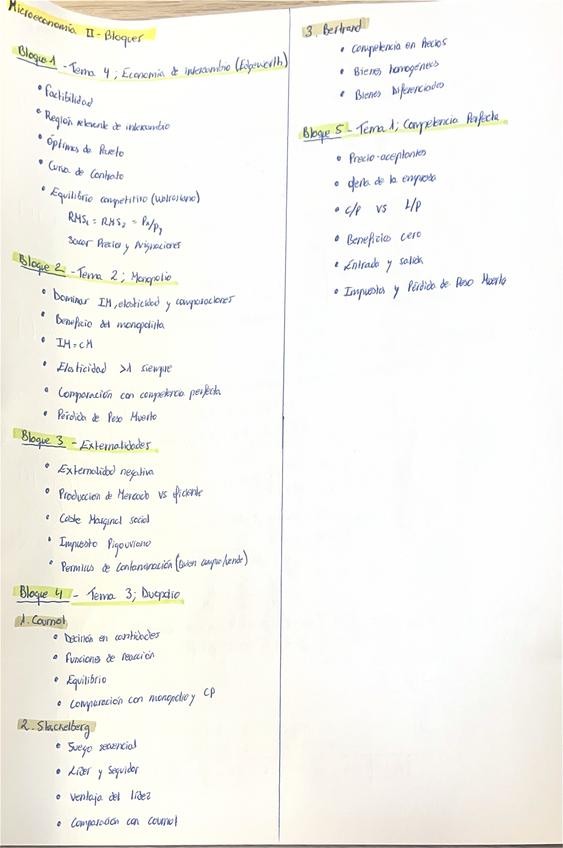 Microeconomía II - Bloques
Bloque 1 - Tema 4; Economía de intercambio (Edgeworth)
• Factibilidad
• Región relevante de intercambio
• Óptimos de Pareto
• Curva de Contrato
• Equilibrio competitivo (Walrasiano)
RMS₁ = RMS₂ = Px/Py
Sacar Precios y Asignaciones
Bloque 2 - Tema 2; Monopolio
• Dominar IM, elasticidad y comparaciones
• Beneficio del monopolista
• IM = CM
• Elasticidad >1 siempre
• Comparación con competencia perfecta
• Pérdida de Peso Muerto
Bloque 3 - Externalidades
• Externalidad negativa
• Producción de Mercado vs eficiente
• Coste Marginal social
• Impuesto Pigouviano
• Permisos de Contaminación (Quien compra/vende)
Bloque 4 - Tema 3; Duopolio
1. Cournot
• Decisión en cantidades
• Funciones de reacción
• Equilibrio
• Comparación con monopolio y CP
2. Stackelberg
• Juego secuencial
• Líder y Seguidor
• Ventaja del líder
• Comparación con Cournot
3. Bertrand
• Competencia en Precios
• Bienes homogéneos
• Bienes Diferenciados
Bloque 5 - Tema 1; Competencia Perfecta
• Precio-aceptantes
• Oferta de la empresa
• C/P VS L/P
• Beneficio cero
• Entrada y salida
• Impuestos y Pérdida de Peso Muerto